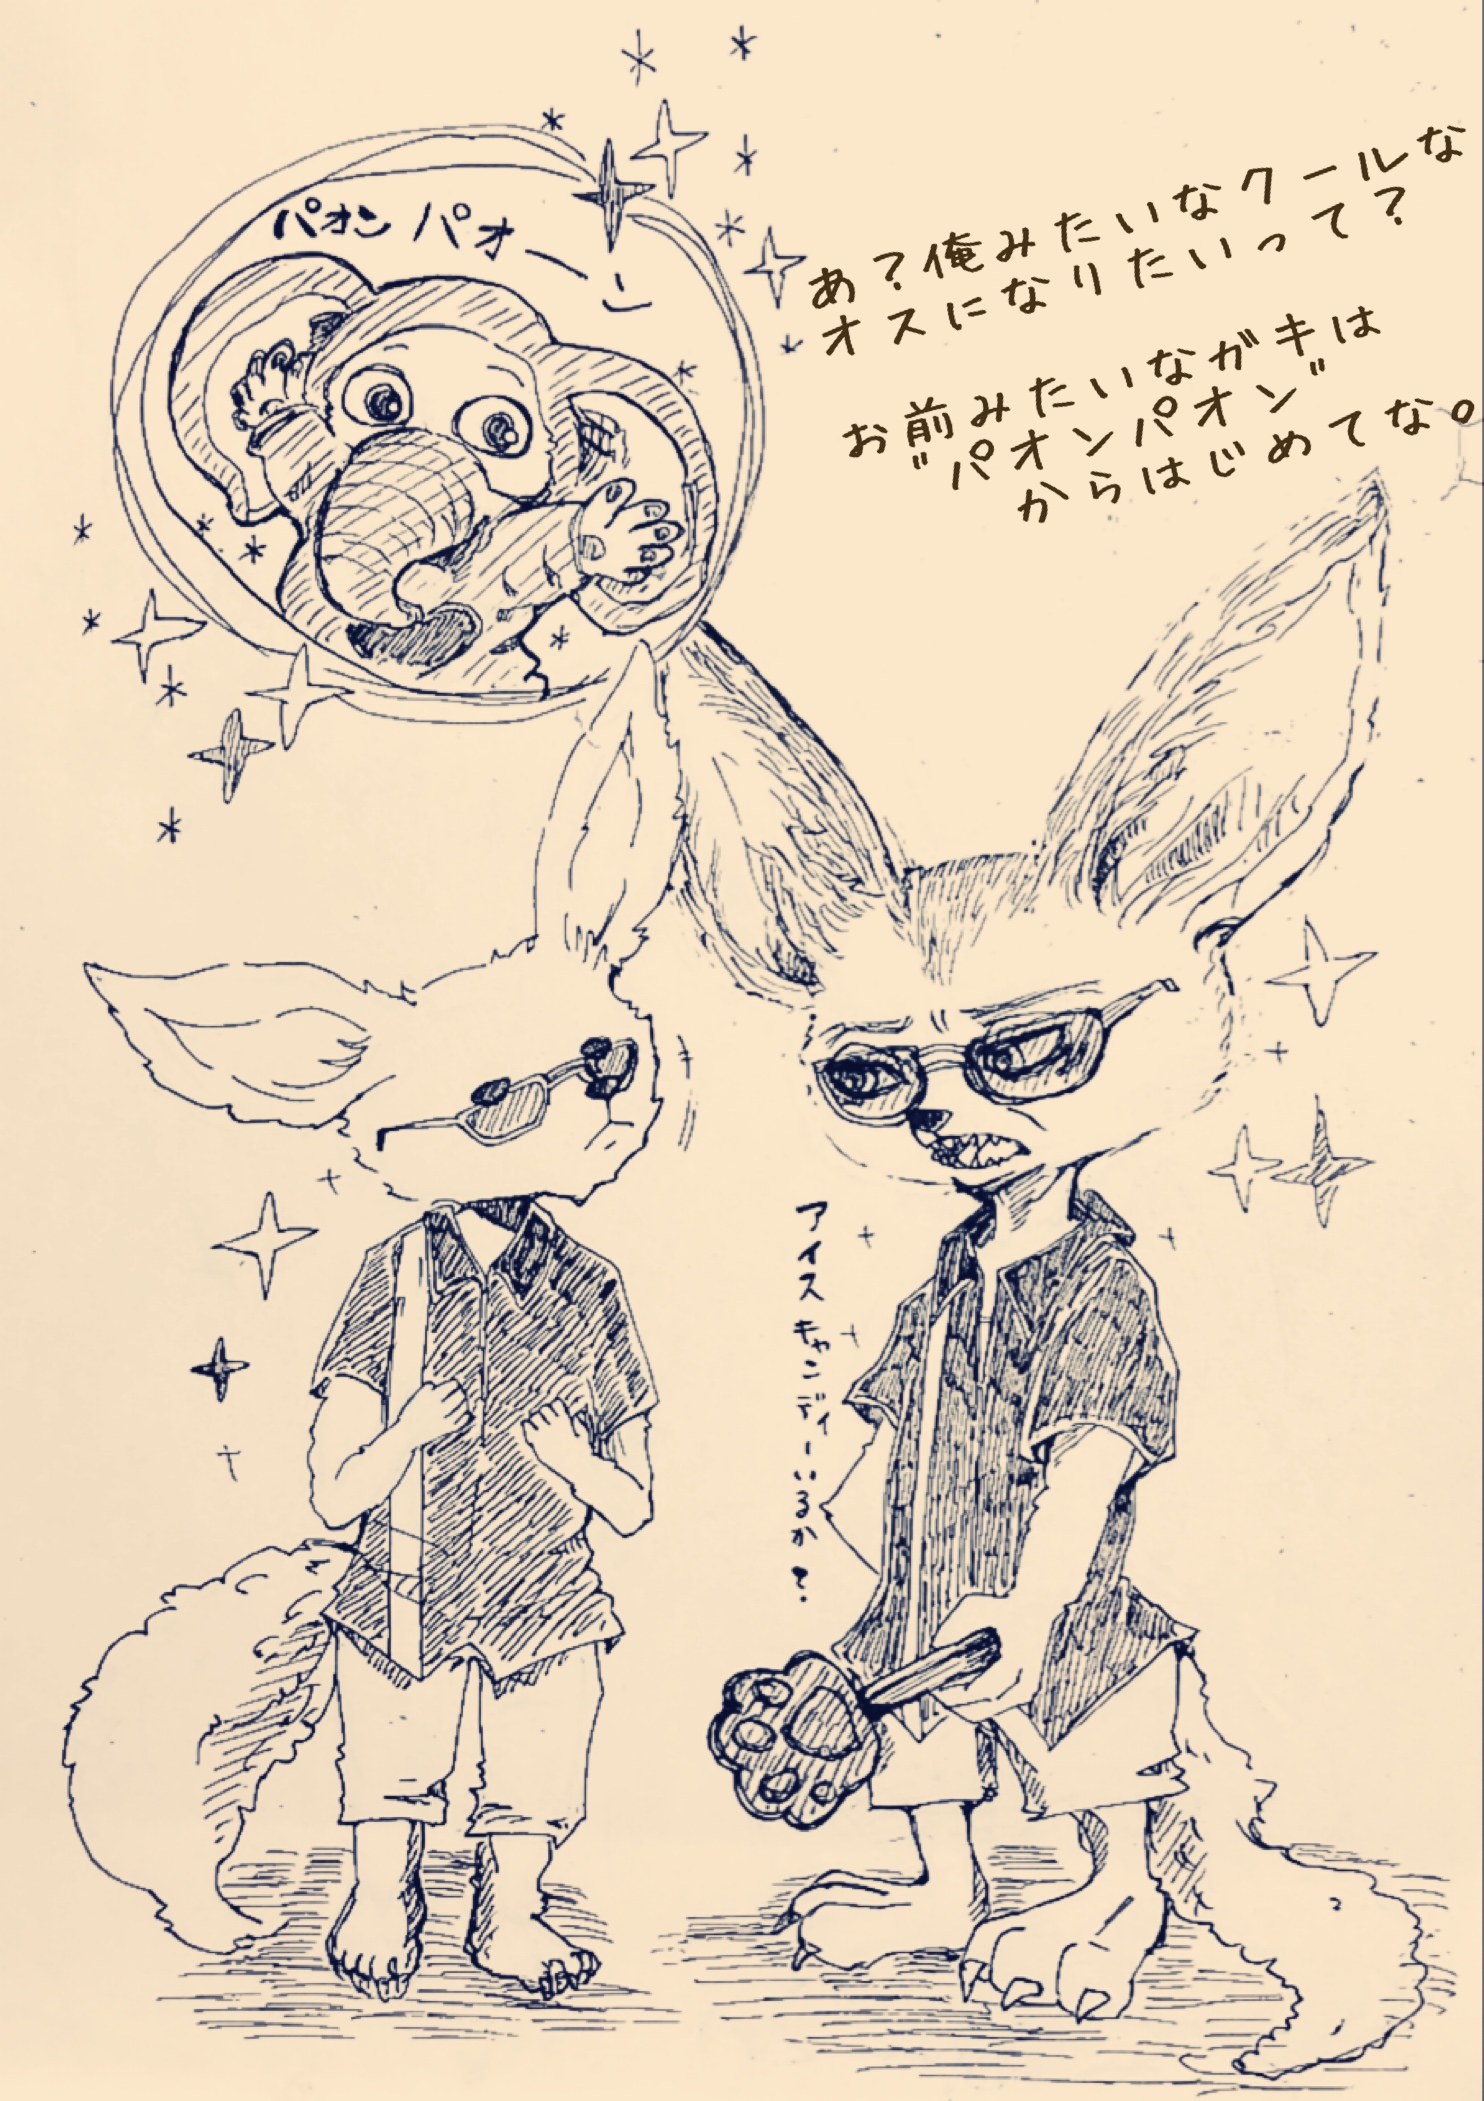 パオン パオーン
あ?俺みたいなクールな
オスになりたいって?
お前みたいなガキは
"パオンパオン"
からはじめてな。
アイスキャンディーいるか?